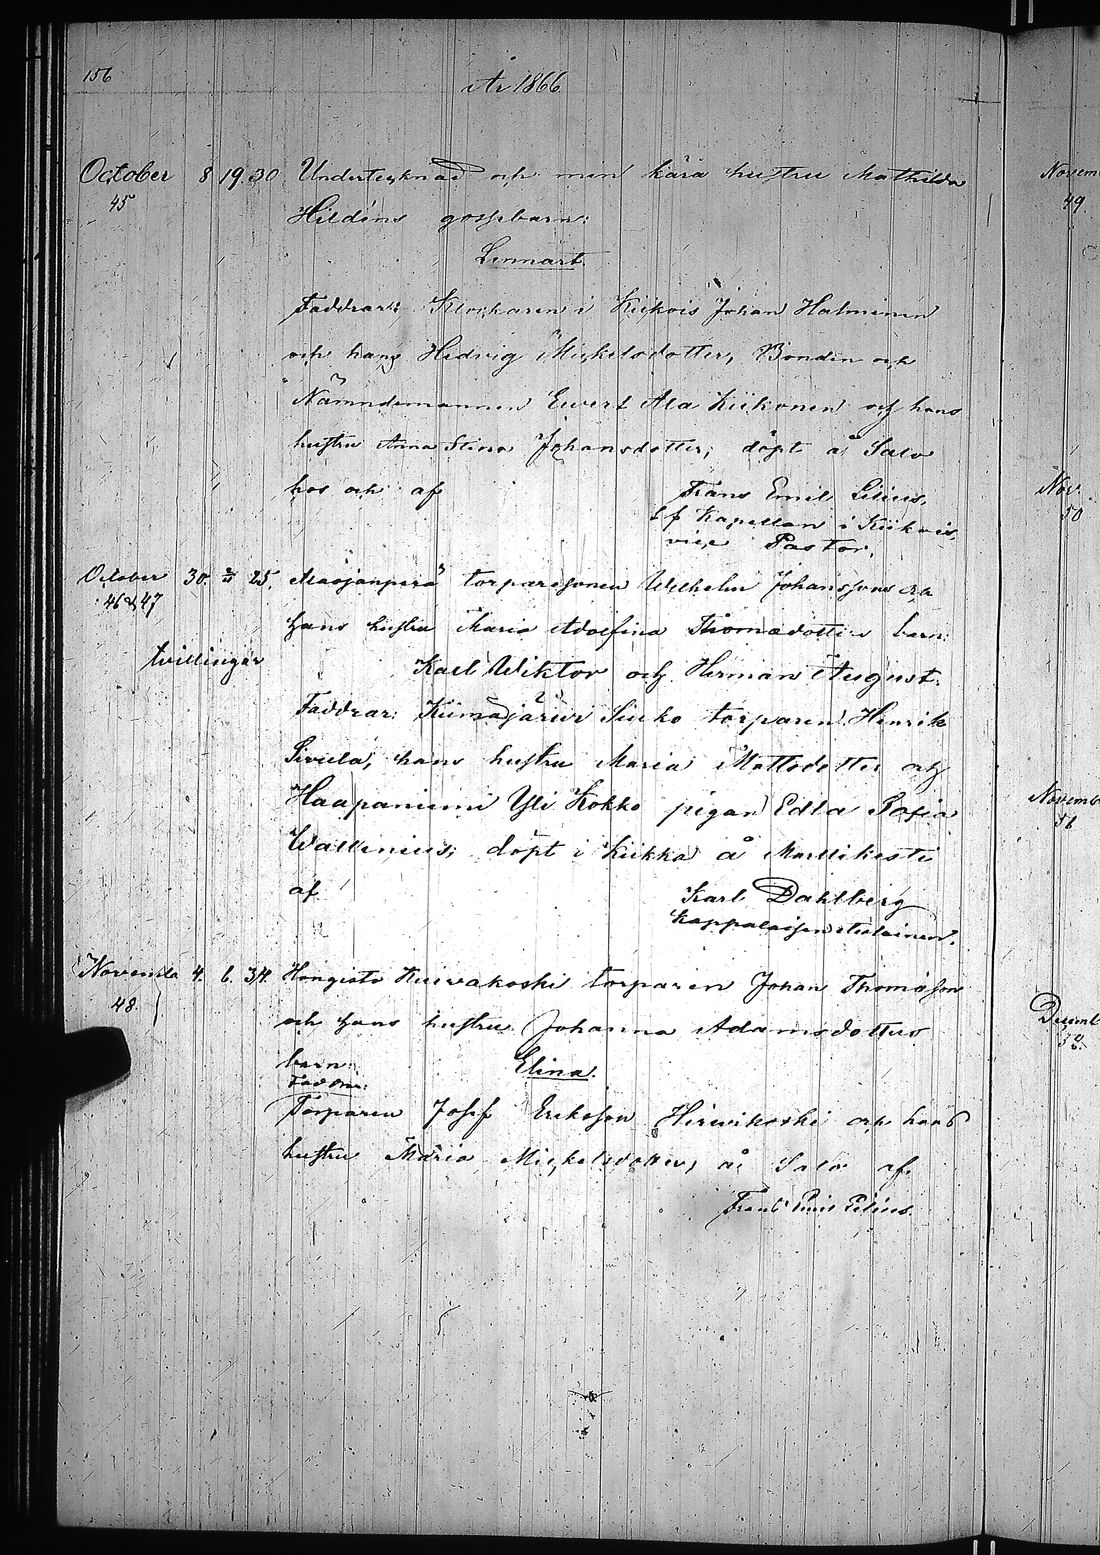 156
År 1866
October 8 19. 30 Undertecknad och min kära hustru Mathilda
45
Hildéns gossebarn:
Lennart.
Faddrar: Klockaren i Kiikois Johan Halminen
och hans Hedvig Mickelsdotter, Bonden och
Nämndemannen Evert Ala Kiikonen och hans
hustru Anna Stina Johansdotter; döpt å Salo
hos och af Frans Emil Lilius,
Kapellan i Kiikois,
vice Pastor.
October 30. 25. torparesonen Wilhelm Johanssons och
46 & 47
hans hustru Maria Adolfina Thomasdotters barn:
tvillingar
Karl Wiktor och Herman August.
Faddrar: Kiimajärvi Siuko torparen Henrik
Sivula, hans hustru Maria Mattsdotter och
Haapaniemi Yli Kokko pigan Edla Sofia
Wallenius; döpt i Kiikka å
af Karl Dahlberg
Kappalaisen
November 4. 6. 34. Hongisto Kuivakoski torparen Johan Thomasson
48.
och hans hustru Johanna Adamsdotters
barn: Elina.
Faddrar:
Torparen Josef Eriksson Hirvikoski och hans
hustru Maria Mickelsdotter, å Salo af
Frans Emil Lilius.
Novem
49.
Nov.
50
Novemb
Decemb